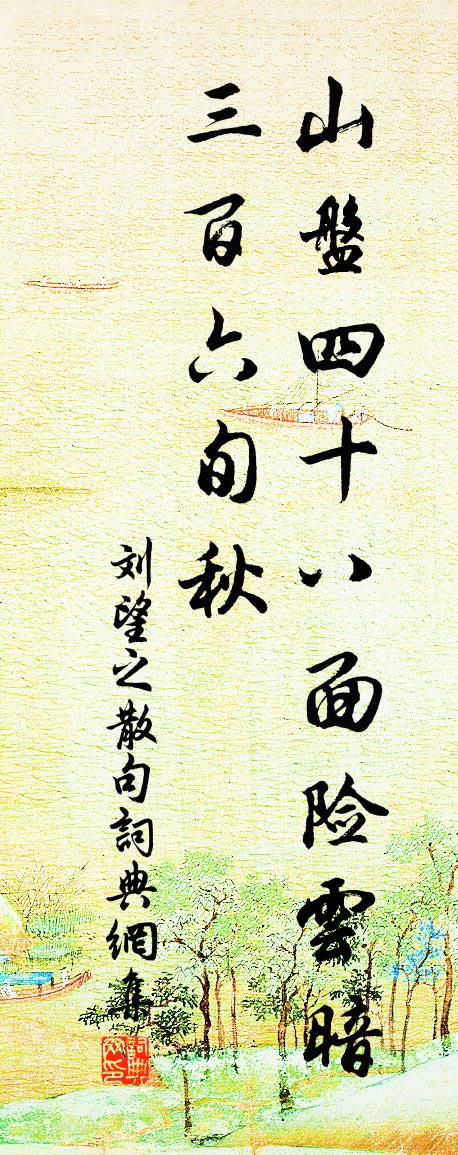 山盤四十八面险雲暗
三百六旬秋
刘望之散句詞典網集